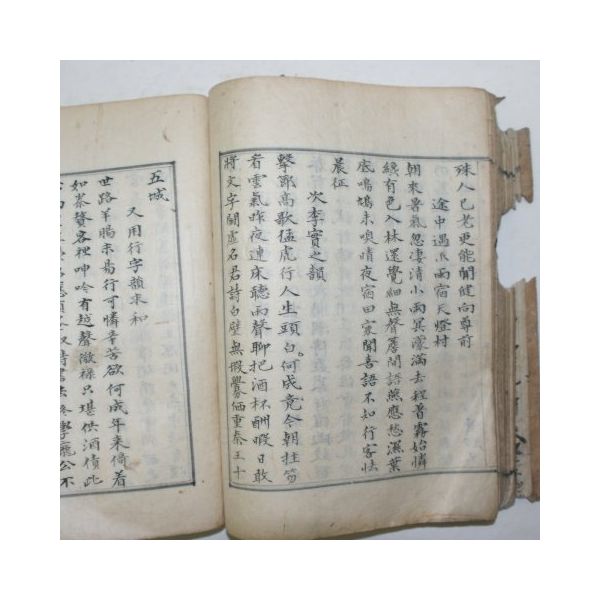 殊人已老更能關健向尊前
途中遇泒雨宿天燈村
朝來骨氣忽凄清小雨冥濛滿去程首霧始憐
綫有色入林還覺細無聲簷間語燕應愁濕葉
底鳴鳩未喚晴夜宿田家聞吾語不知行客怯
晨征
次李實之韻
擊節高歌猛虎行人生頭白何成竟今朝拄笏
看雲氣昨夜連床聽雨聲聊把酒杯酬暇日敢
將文字鬪虛名君詩白壁無瑕釁価重秦王十
五城
又用行字韻求和
世路羊膓未易行可憐辛苦欲何成年來倚着
如秦贅客裡呻吟有越聲微祿只堪供酒債此